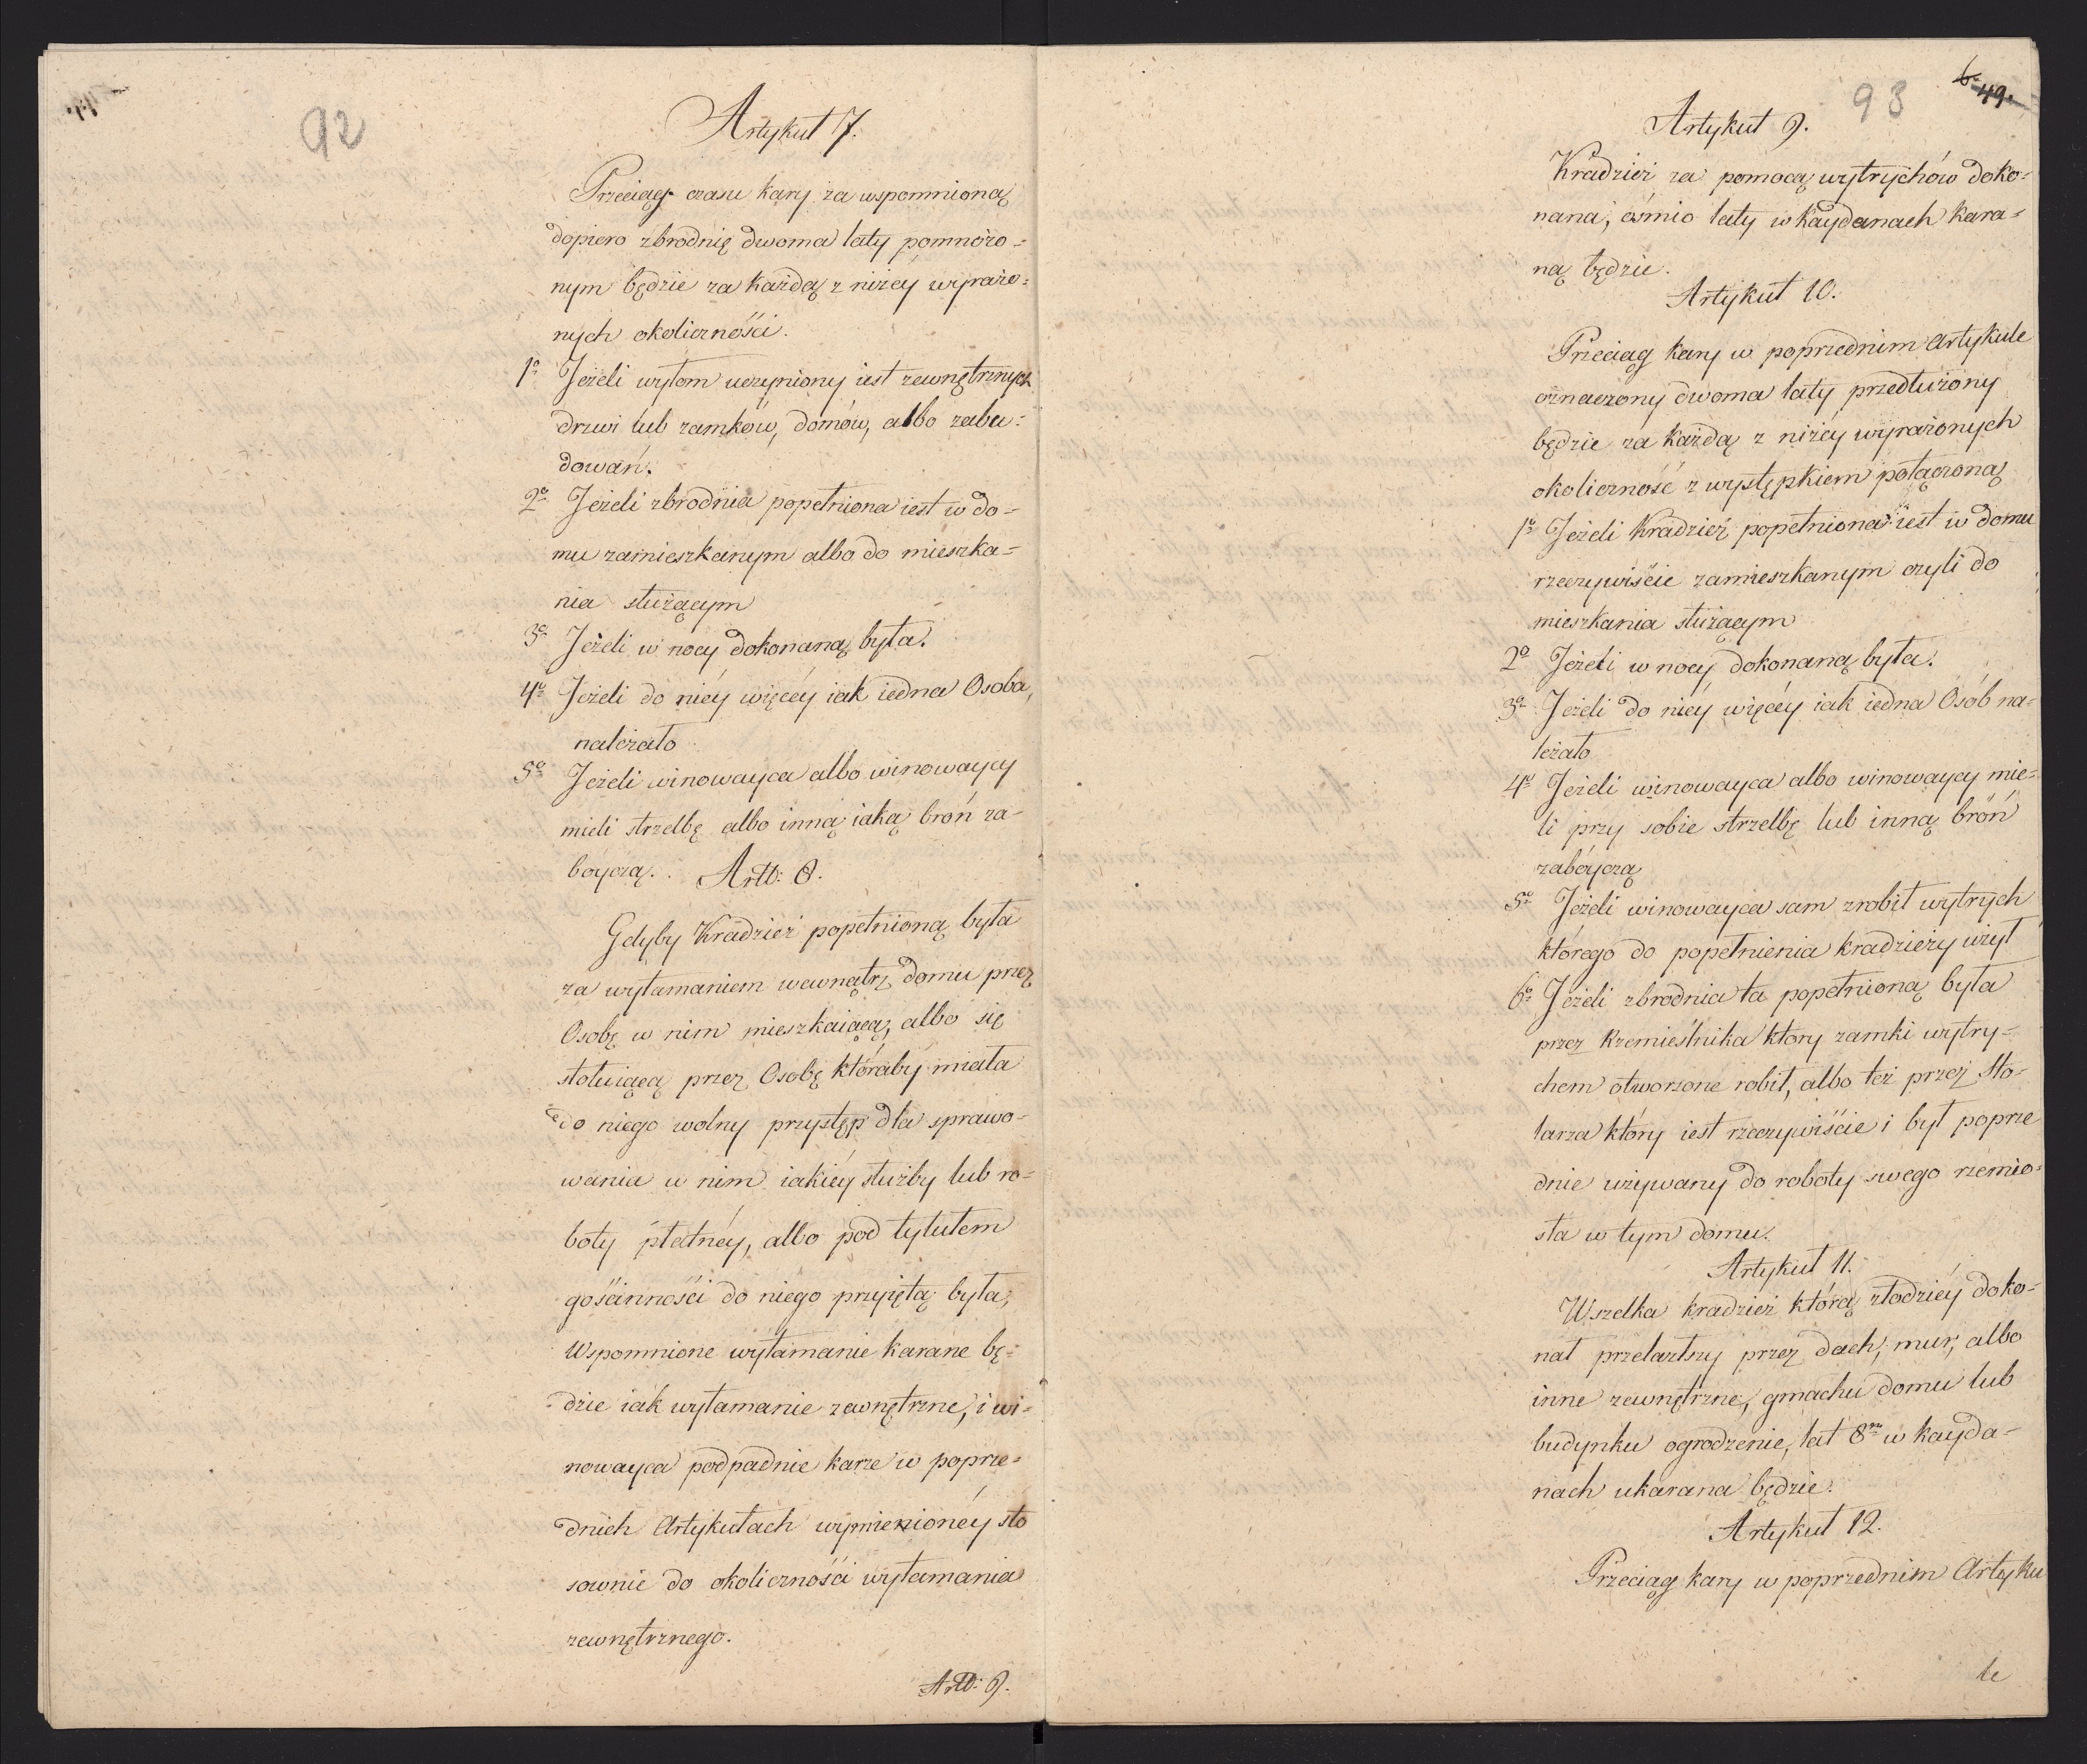 92
Artykuł 7.
Przeciąg czasu kary za wspomnioną
dopiero zbrodnię dwoma laty pomnożo=
nym będzie za każdą z niżey wyrażo=
nych okoliczności.
1o Jeżeli wyłom uczyniony iest zewnętrznych
drzwi lub zamków, domów, albo zabu=
dowań.
2o Jeżeli zbrodnia popełniona iest w do=
mu zamieszkanym albo do mieszka=
nia służącym
3o Jeżeli w nocy dokonaną była.
4o Jeżeli do niéy więcéy iak iedna Osoba,
należało
5o Jeżeli winowayca albo winowaycy
mieli strzelbę albo inną iaką broń za=
bóyczą. Artł: 8.
Gdyby Kradzież popełnioną była
za wyłamaniem wewnątrz domu przez
Osobę w nim mieszkaiącą, albo się
stołuiącą przez Osobę któraby miała
do niego wolny przystęp dla sprawo=
wania w nim iakiéy służby lub ro=
boty płatnéy, albo pod tytułem
gościnności do niego przyiętą była,
Wspomnione wyłamanie karane bę=
dzie iak wyłamanie zewnętrzne, i wi=
nowayca podpadnie karze w poprze=
dnich Artykułach wymienionéy sto
sownie do okoliczności wyłamania
zewnętrznego.
Artł: 9.
93
6. 49.
Artykuł 9.
Kradzież za pomocą wytrychów doko=
nana, ośmio laty w kaydanach kara=
ną będzie.
Artykuł 10.
Przeciąg kary w poprzednim Artykule
oznaczony dwoma laty przedłużony
będzie za każdą z niżey wyrażonych
okoliczność z występkiem połączoną
1o Jeżeli Kradzież popełniona iest w domu
rzeczywiście zamieszkanym czyli do
mieszkania służącym
2o Jeżeli w nocy dokonaną była.
3o Jeżeli do niéy więcéy iak iedna Osób na=
leżało
4o Jeżeli winowayca albo winowaycy mie=
li przy sobie strzelbę lub inną broń
zabóyczą
5o Jeżeli winowayca sam zrobił wytrych
którego do popełnienia kradzieży użył
6o Jeżeli zbrodnia ta popełnioną była
przez Rzemieślnika który zamki wytry=
chem otworzone robił, albo też przez Sto=
larza który iest rzeczywiście i był poprze
dnie używany do roboty swego rzemio=
sła w tym domu.
Artykuł 11.
Wszelka kradzież którą złodziéy doko=
nał przelazłszy przez dach, mur, albo
inne zewnętrzne, gmachu domu lub
budynku ogrodzenie, lat 8m w kayda=
nach ukarana będzie.
Artykuł 12.
Przeciąg kary w poprzednim Artyku
le